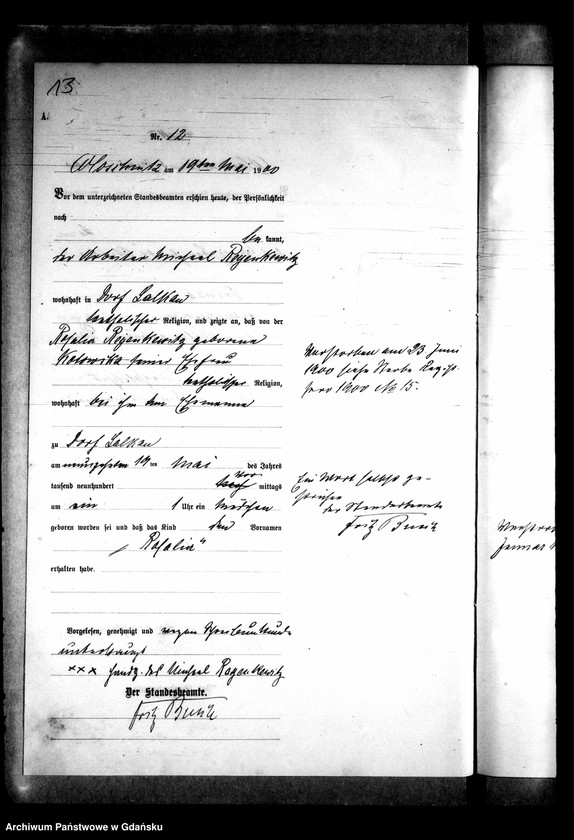 13
A.
Nr. 12
am 19ten Mai 1900
Vor dem unterzeichneten Standesbeamten erschien heute, der Persönlichkeit
nach
be kannt,
der Arbeiter Michael
wohnhaft in Dorf Lalkau
katholischer Religion, und zeigte an, daß von der
Rosalia geborene
seiner Ehefrau
katholischer Religion,
wohnhaft bei ihm dem Ehemanne
zu Dorf Lalkau
am neunzehnten 19ten Mai des Jahres
vor
tausend neunhundert nach mittags
um ein 1 Uhr ein Mädchen
geboren worden sei und daß das Kind den Vornamen
„Rosalia“
erhalten habe.
Vorgelesen, genehmigt und wegen Schreibunkunde
unterkreuzt
xxx Handz. des Michael
Der Standesbeamte.
Fritz
Verstorben am 23 Juni
1900 siehe Sterbe Reg.
pro 1900 No 15.
Ein Wort
der Standesbeamte
Fritz
Januar
Archiwum Państwowe w Gdańsku